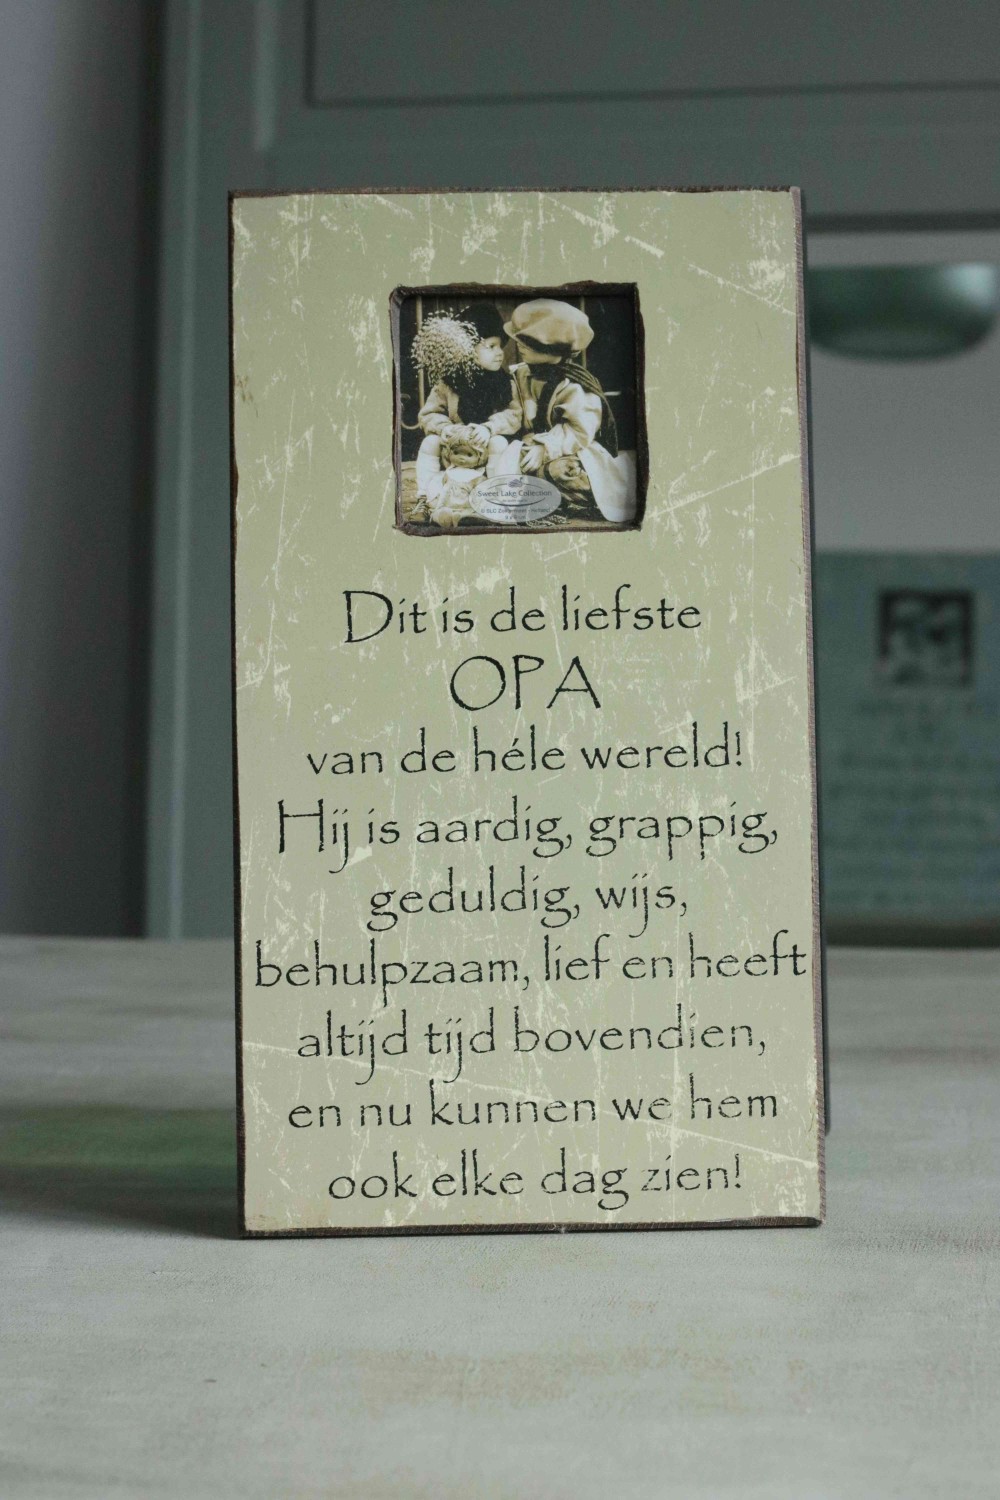 Sweet Lake Collection
Dit is de liefste
OPA
van de héle wereld!
Hij is aardig, grappig,
geduldig, wijs,
behulpzaam, lief en heeft
altijd tijd bovendien,
en nu kunnen we hem
ook elke dag zien!